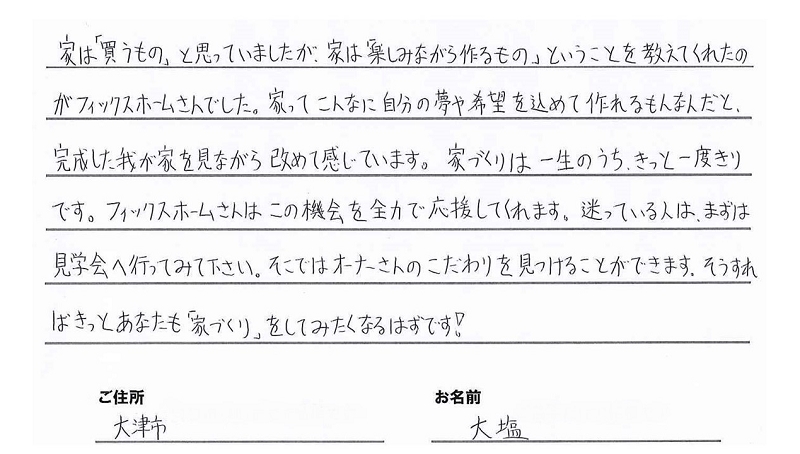 家は「買うもの」と思っていましたが、家は「楽しみながら作るもの」ということを教えてくれたの
がフィックスホームさんでした。家ってこんなに自分の夢や希望を込めて作れるもんなんだと、
完成した我が家を見ながら改めて感じています。家づくりは一生のうち、きっと一度きり
です。フィックスホームさんはこの機会を全力で応援してくれます。迷っている人は、まずは
見学会へ行ってみて下さい。そこではオーナーさんのこだわりを見つけることができます。そうすれ
ばきっとあなたも「家づくり」をしてみたくなるはずです!
ご住所 お名前
大津市 大塩